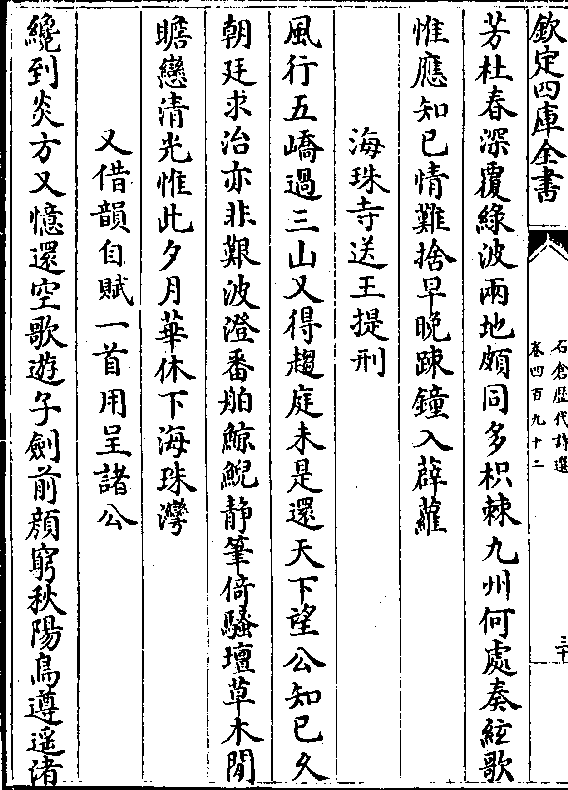 欽定四庫全書
石倉歷代詩選
卷四百九十二
三十
芳杜春深覆綠波兩地頗同多枳棘九州何處奏絃歌
惟應知已情難捨早晚踈鐘入薜蘿
海珠寺送王提刑
風行五嶠過三山又得趨庭未是還天下望公知已久
朝廷求治亦非艱波澄番舶鯨鯢静筆倚騷壇草木閒
瞻戀清光惟此夕月華休下海珠灣
又借韻自賦一首用呈諸公
纔到炎方又憶還空歌遊子劍前顔窮秋陽鳥遵遥渚